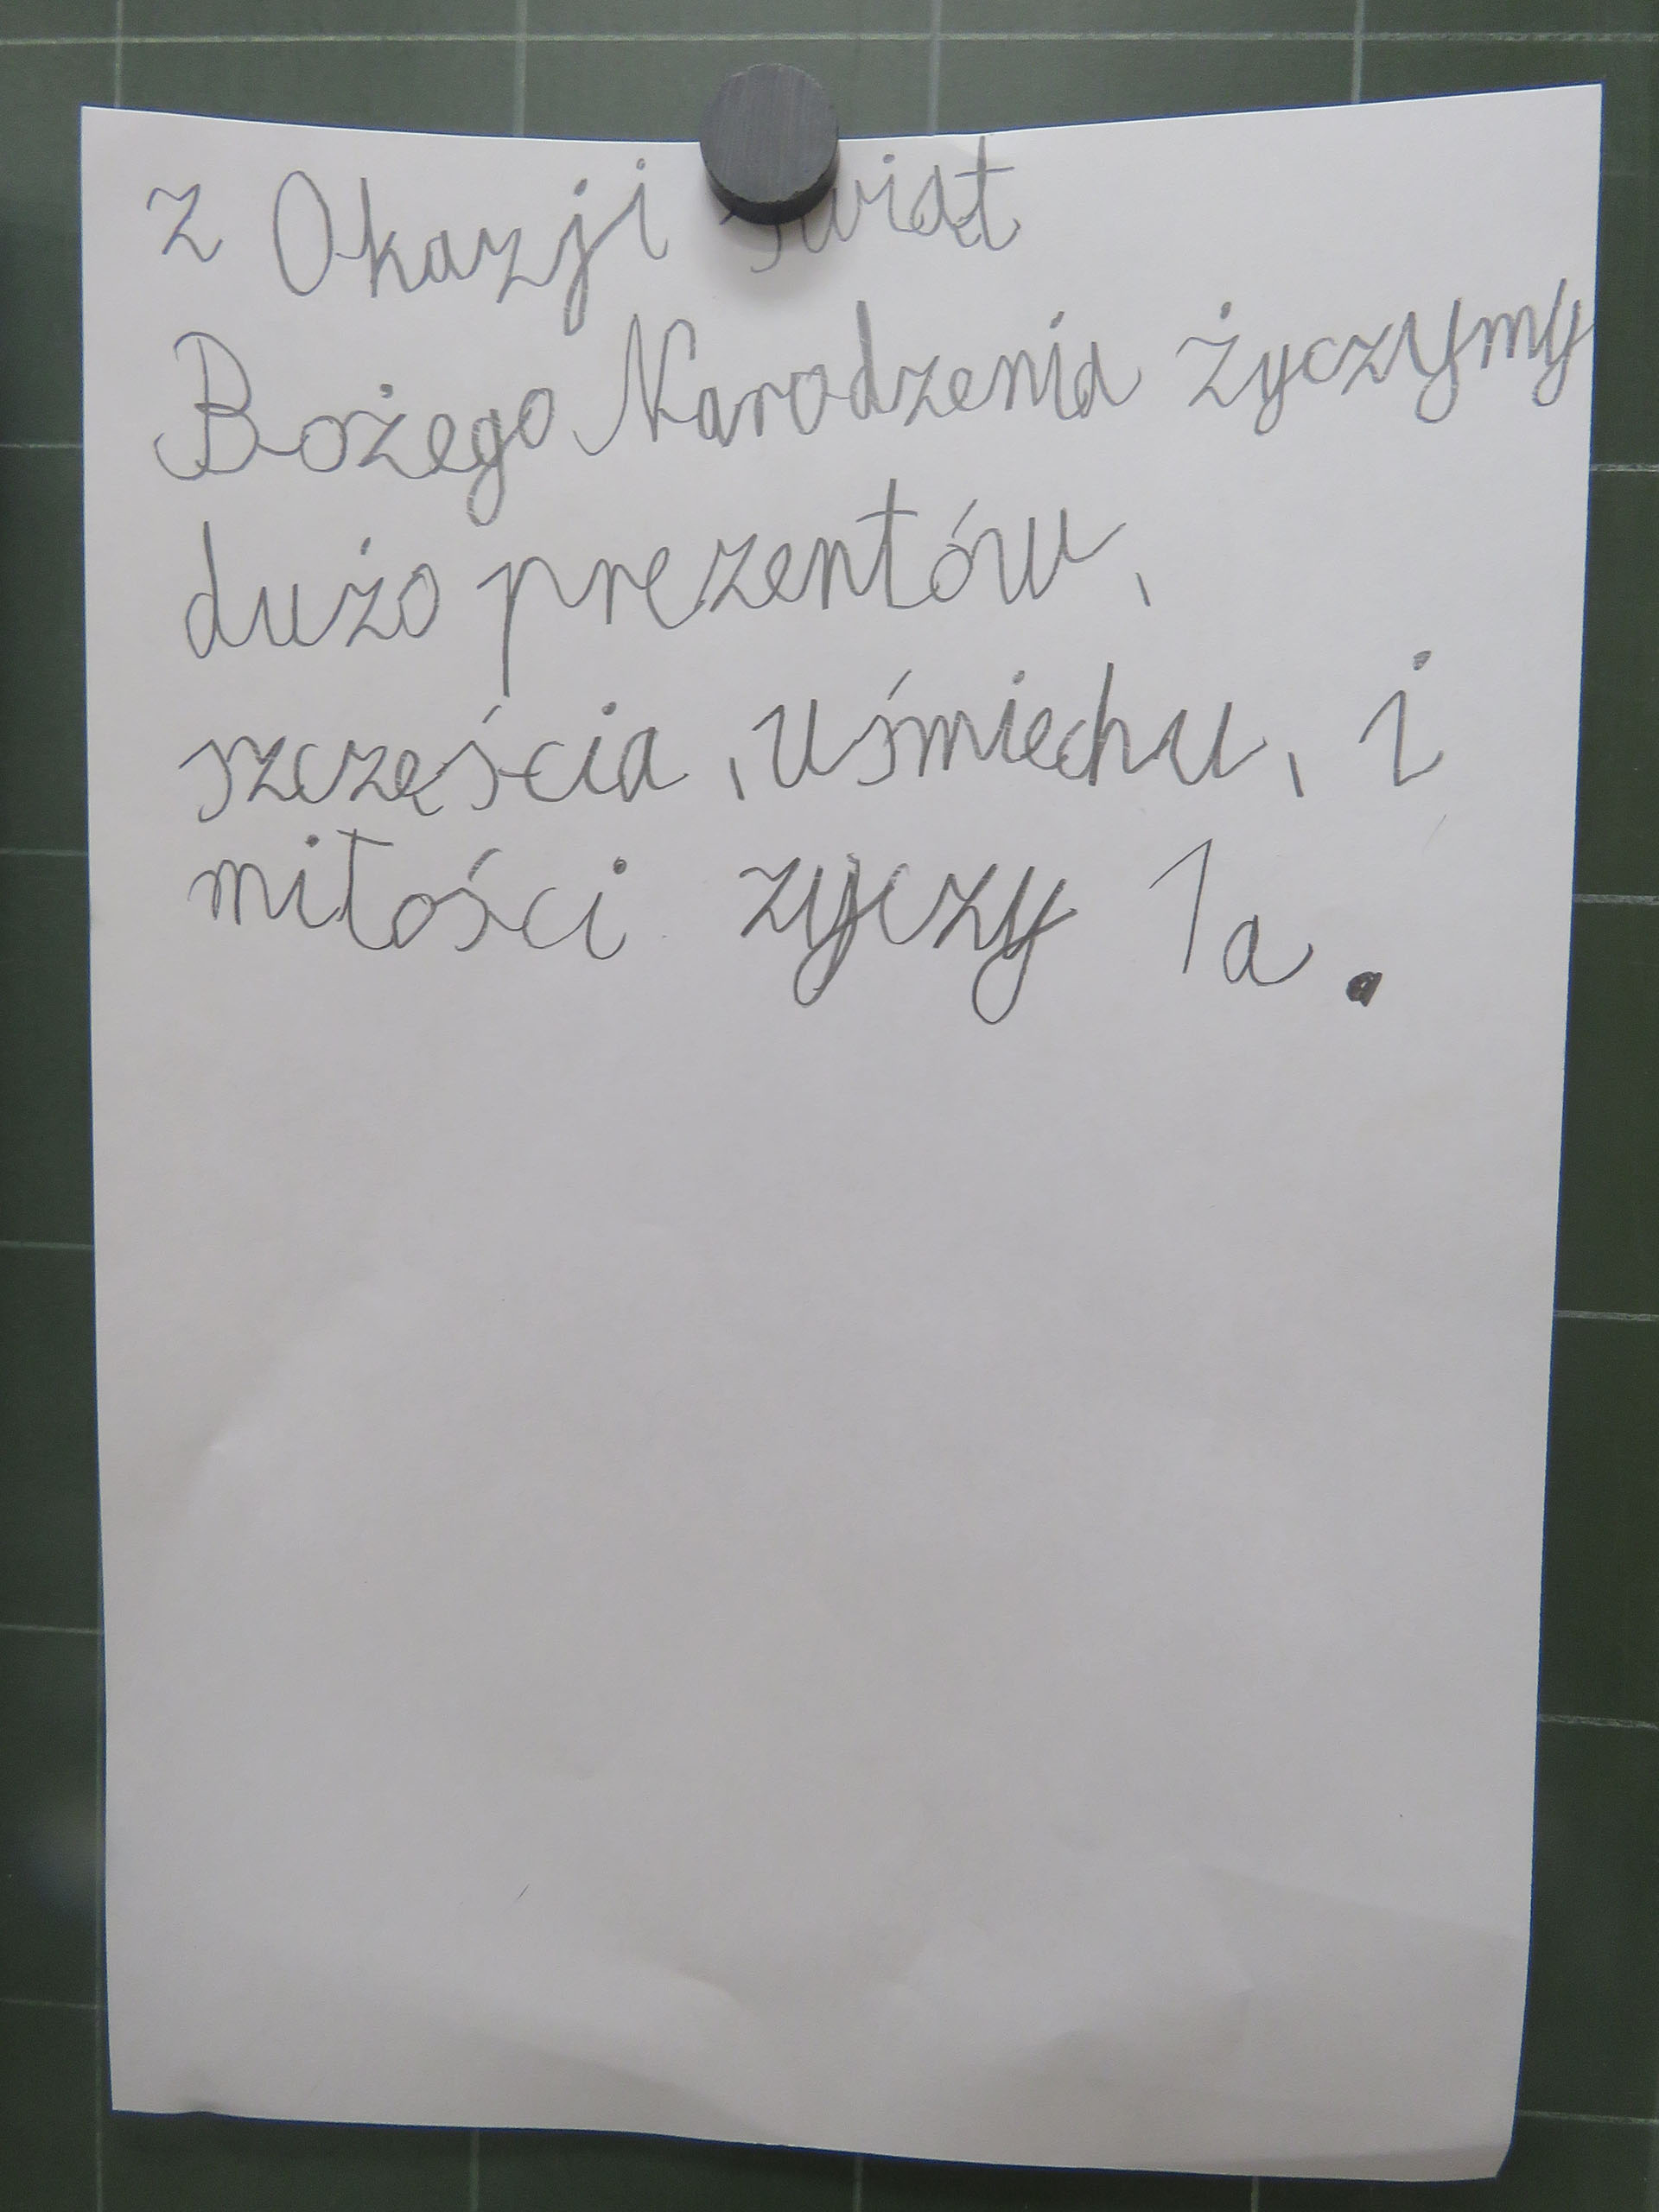 z Okazji świąt
Bożego Narodzenia życzymy
dużo prezentów,
szczęścia, uśmiechu, i
miłości zyczy 1a.